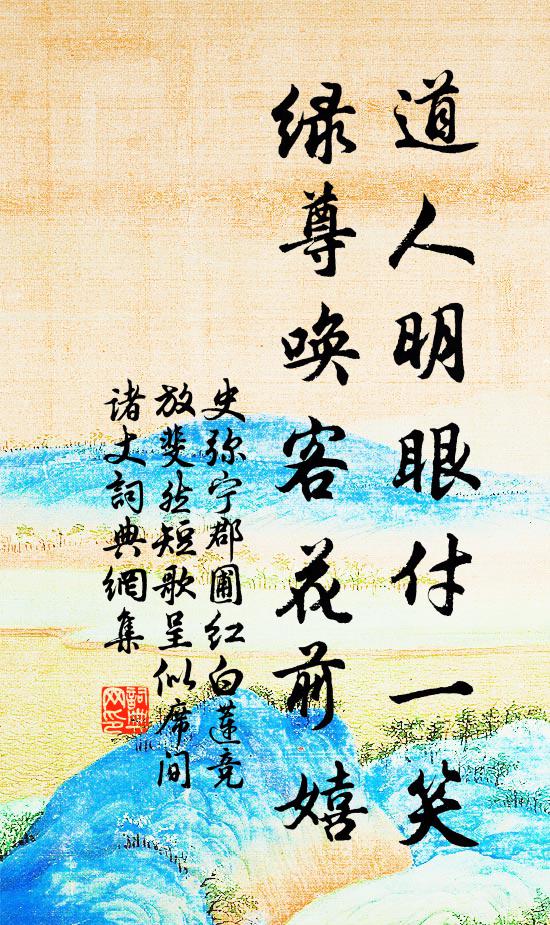 道人明眼付一笑
绿尊唤客花前嬉
史弥宁郡圃红白莲竞
放斐然短歌呈似席间
诸丈詞典網集